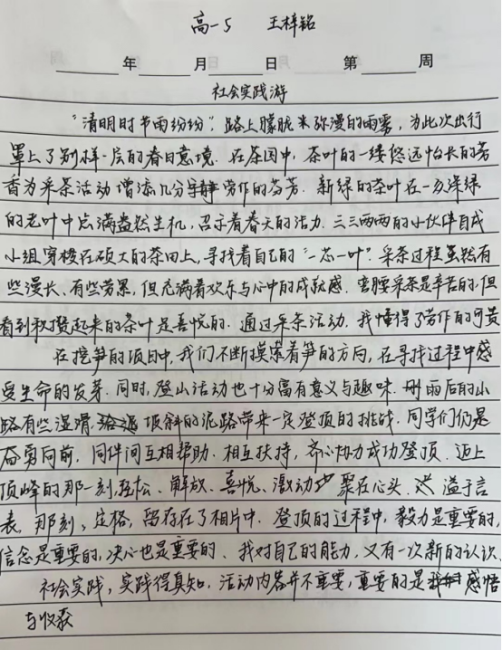 高一5 王梓铭
年 月 日 第 周
社会实践游
“清明时节雨纷纷”,路上朦胧来弥漫的雨雾,为此次出行
罩上了别样一层的春日意境。在茶园中,茶叶的一缕悠远怡长的芳
香为采茶活动增添几分劳作的芬芳。新绿的茶叶在一众深绿
的老叶中点满盎然生机,召示着春天的活力。三三两两的小伙伴自成
小组穿梭在硕大的茶田上,寻找着自己的“一芯一叶”。采茶过程虽然有
些漫长、有些劳累,但充满着欢乐与心中的成就感。弯腰采茶是辛苦的,但
看到积攒起来的茶叶是喜悦的。通过采茶活动,我懂得了劳作的可贵
在挖笋的项目中,我们不断摸索着笋的方向,在寻找过程中感
受生命的发芽。同时,登山活动也十分富有意义与趣味。雨后的山
路有些湿滑,坡斜的泥路带来一定登顶的挑战。同学们仍是
奋勇向前,同伴间互相帮助,相互扶持,齐心协力成功登顶。迈上
顶峰的那一刻轻松、解放、喜悦、激动聚在心头,溢于言
表。那刻,定格,留存在了相片中。登顶的过程中,毅力是重要的,
信念是重要的,决心也是重要的。我对自己的能力,又有一次新的认识。
社会实践,实践得真知。活动内容并不重要,重要的是感悟
与收获